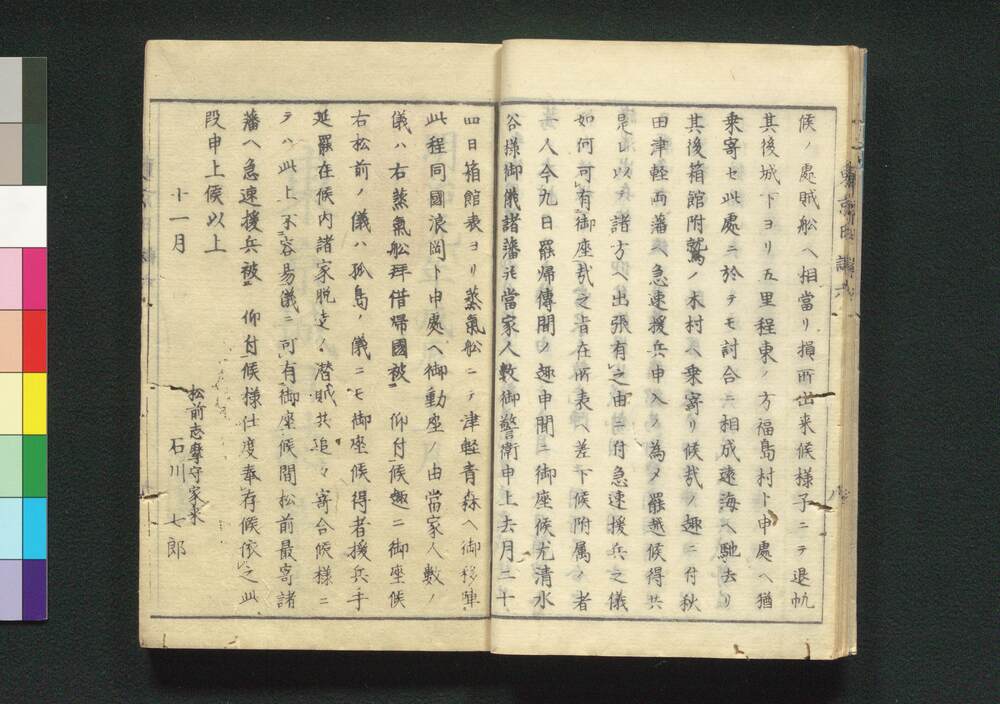 候ノ處賊船ヘ相當リ損所出来候様子ニテ退帆
其後城下ヨリ五里程東ノ方福島村ト申處ヘ猶
乗寄セ此處ニ於テモ討合ニ相成遠海ヘ馳去リ
其後箱館附鷲ノ木村ヘ乗寄リ候哉ノ趣ニ付秋
田津軽両藩ヘ急速援兵申入ノ為メ罷越候得共
是以テ諸方ヘ出張有之由ニ付急速援兵之儀
如何可有御座哉之旨在所表ヘ差下候附属ノ者
人今九日罷帰傳聞ノ趣申聞ニ御座候尤清水
谷様御儀諸藩並當家人数御警衛申上去月二十
四日箱館表ヨリ蒸氣船ニテ津軽青森ヘ御移陣
此程同國浪岡ト申處ヘ御動座ノ由當家人數ノ
儀ハ右蒸氣船拜借帰國被 仰付候趣ニ御座候
右松前ノ儀ハ孤島ノ儀ニモ御座候得者援兵手
延罷在候内諸家脱走ノ潜賊共追々寄合候様ニ
テハ此上不容易儀ニ可有御座候間松前最寄諸
藩ヘ急速援兵被 仰付候様仕度奉存候依之此
段申上候以上
十一月
松前志摩守家来
石川 七郎